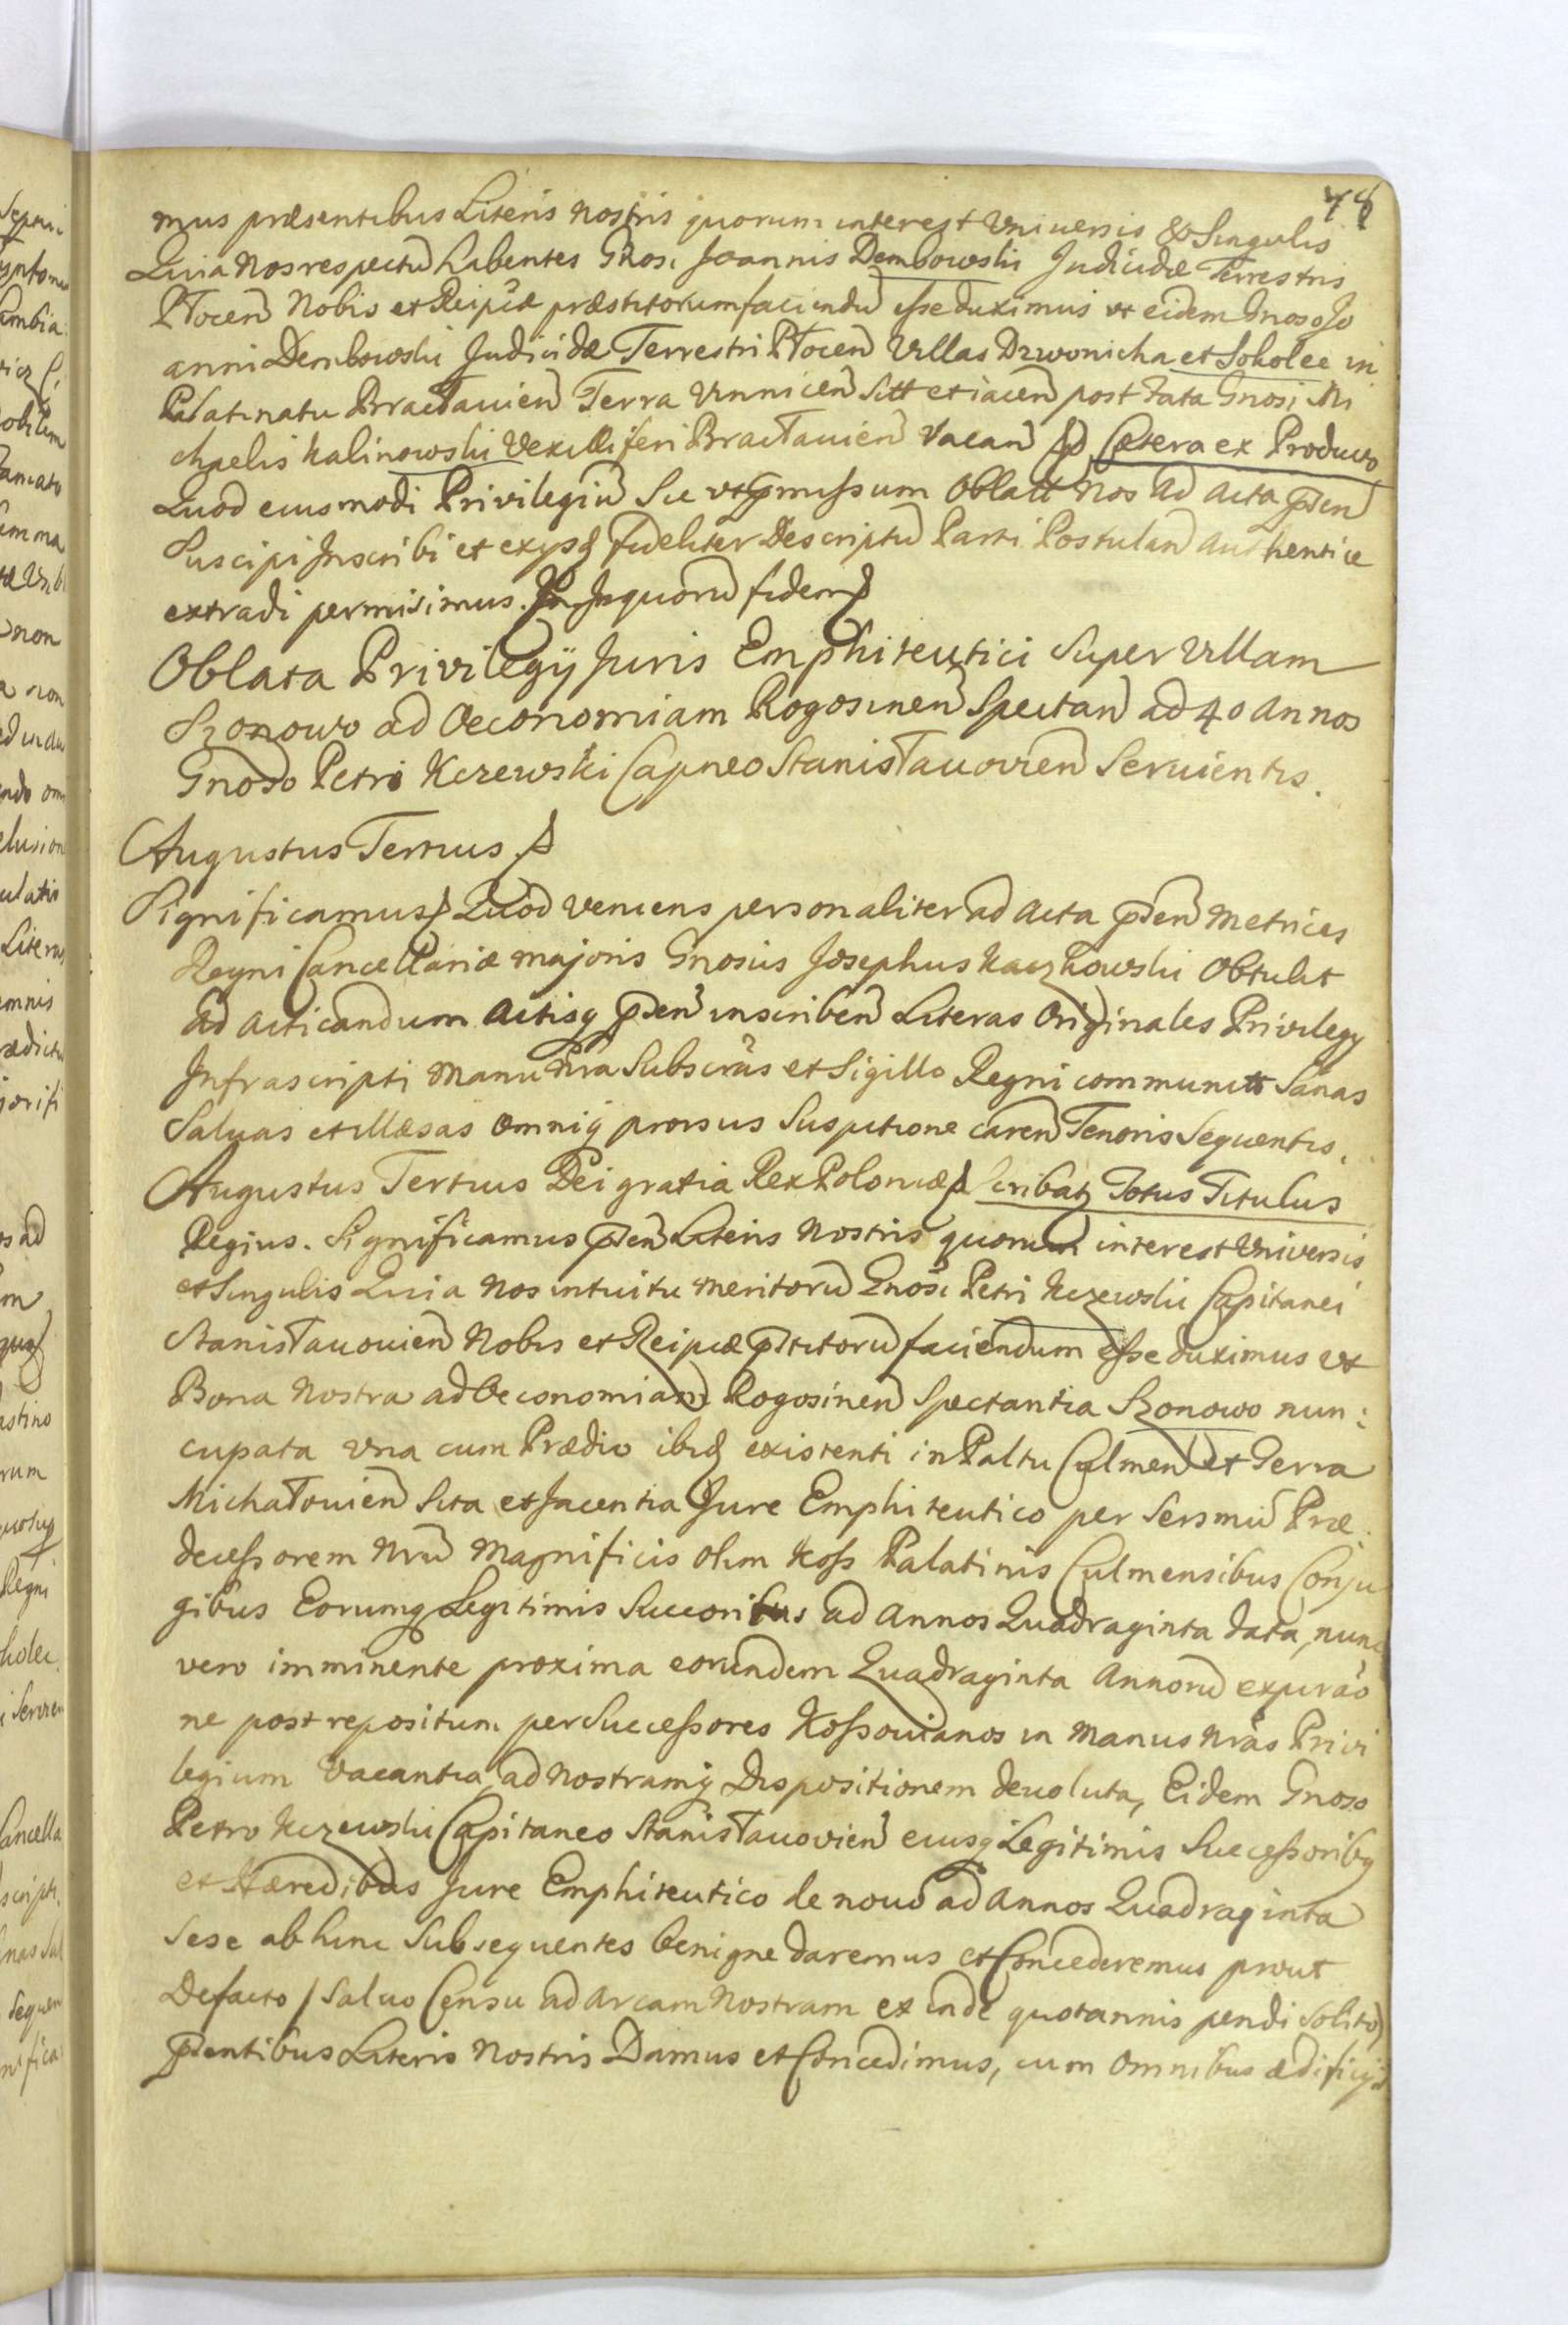 78
mus præsentibus Literis nostris quorum interest Universis & Singulis
Quia Nos respectu habentes Gnosi Joannis Dembowski Judicidæ Terrestris
Płocen Nobis et Reipcæ præstitorum faciendu esse duximus ut eidem Gnoso Jo
anni Dembowski Judicidæ Terrestri Płocen Villas Dzwonicha et Sokolec in
Palatinatu Bracłavien Terra Vinnicen Sitt et iacen post fata Gnosi Mi
chaelis Kalinowski Vexilliferi Bracłavien Vacan Cætera ex Producto
Quod eiusmodi Privilegiu Sic ut pmissum Oblatt Nos ad Acta pñen
Suscipi Inscribi et exysq fideliter Descriptu Parti Postulan authentice
extradi permisimus. In quoru fidem
Oblata Privilegÿ Juris Emphiteutici Super Villam
Szonowo ad Oeconomiam Rogosinen Spectan ad 40 annos
Gnoso Petro Kczewski Capneo Stanisławovien Servientis.
Augustus Tertius
Significamus Quod veniens personaliter ad Acta pñen Metrices
Regni Cancellariæ majoris Gnosus Josephus Kaczkowski Obtulit
ad Acticandum Actisq pñen inscriben Literas Originales Privilegy
Infrascripti Manu Nra Subscras et Sigillo Regni communitt Sanas
Salvas et illæsas omniq prorsus Suspitione caren Tenoris Sequentis.
Augustus Tertius Dei gratia Rex Poloniæ Scribatz Totus Titulus
Regius. Significamus pñen Literis Nostris quorum interest Universis
et Singulis Quia Nos intuitu meritoru Gnosi Petri Kczewski Capitanei
Stanisławovien Nobis et Reipcæ pstitoru faciendum esse duximus ut
Bona Nostra ad Oeconomiam Rogosinen Spectantia Szonowo nun:
cupata una cum Prædio ibiq existenti in Paltu Culmen et Terra
Michałovien Sita et Jacentia Jure Emphiteutico per Sersmu Præ
decessorem Nrũ Magnificis olim Koss Palatinis Culmensibus Conju
gibus Eorumq Legitimis Succoribus ad Annos Quadraginta data, nunc
vero imminente proxima eorundem Quadraginta Annoru expirão
ne post repositum per Successores Kossovianos in Manus Nras Privi
legium Vacantia, ad Nostramq Dispositionem devoluta, Eidem Gnoso
Petro Kczewski Capitaneo Stanisławovien eiusq Legitimis Successoribq
et Hæredibus Jure Emphiteutico de novo ad Annos Quadraginta
Sese ab hinc Subsequentes benigne daremus et Concederemus prout
Defacto / Salvo Censu ad Arcam Nostram ex inde quotannis pendi Solito)
pñentibus Literis Nostris Damus et Concedimus, cum Omnibus ædificijs